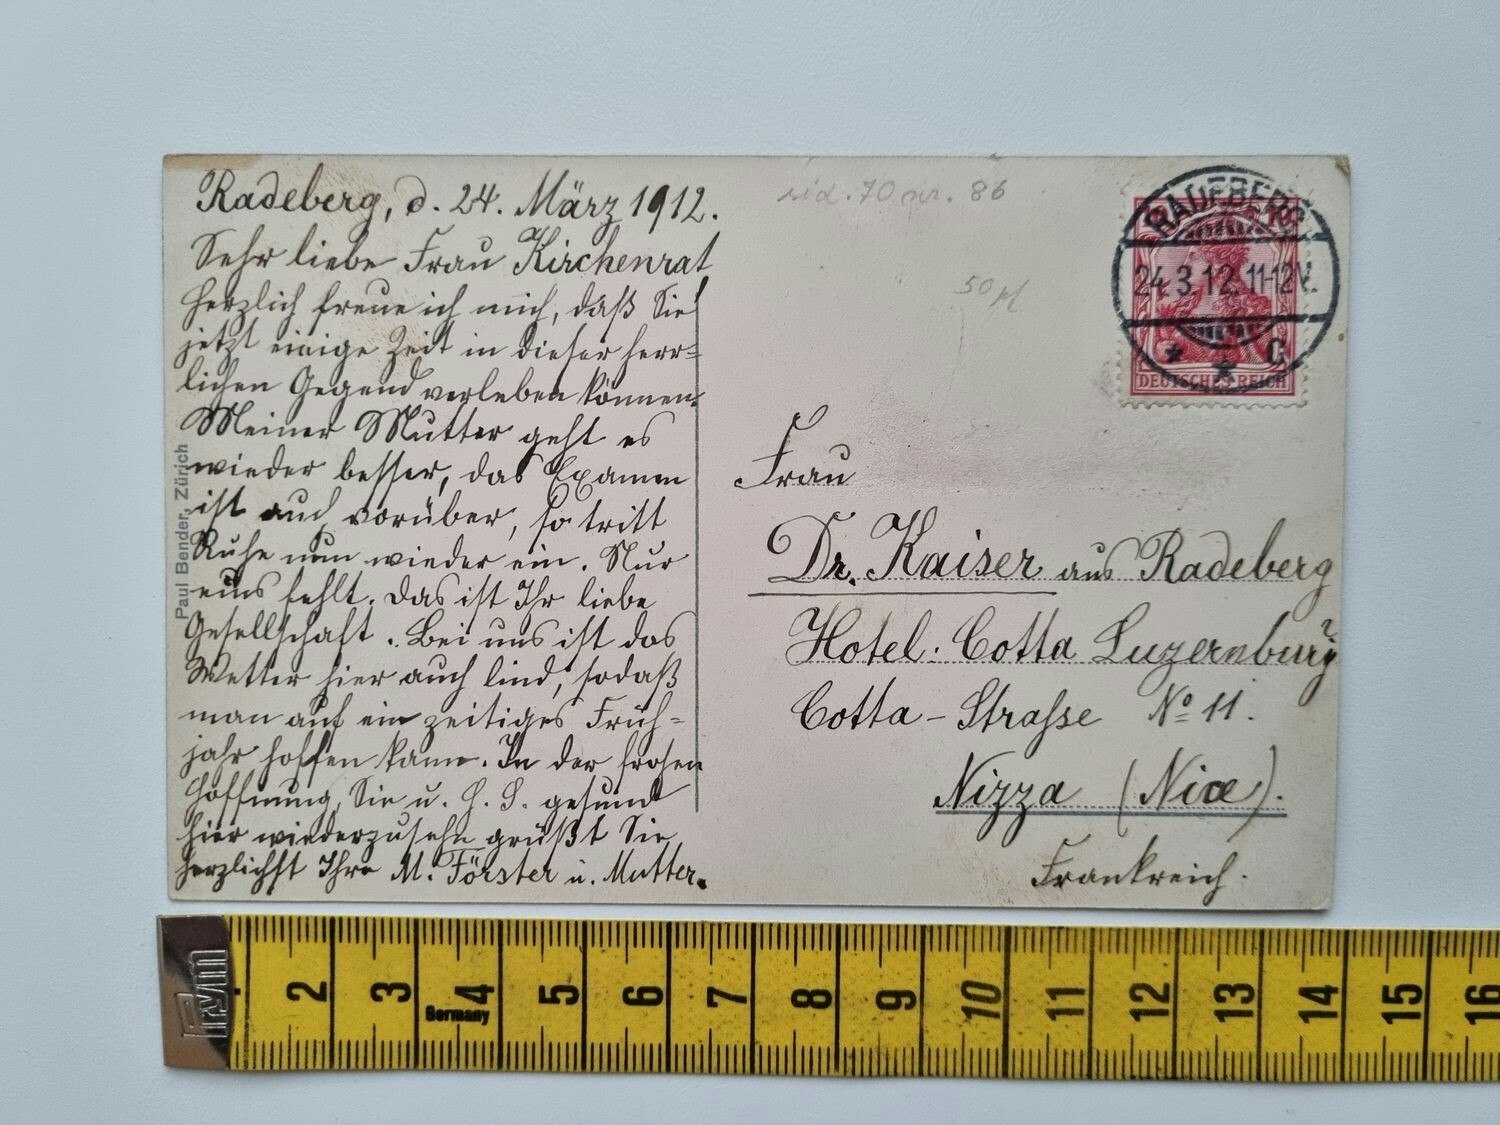 Radeberg, d. 24. März 1912.
Sehr liebe Frau Kirchenrat
Herzlich freue ich mich, daß Sie
jetzt einige Zeit in dieser herr=
lichen Gegend verleben können.
Meiner Mutter geht es
wieder besser, das Examen
ist auch vorüber, so tritt
Ruhe nun wieder ein. Nur
eins fehlt. Das ist Ihr liebe
Gesellschaft. Bei uns ist das
Wetter hier auch lind, sodaß
man auf ein zeitiges Früh=
jahr hoffen kann. In der frohen
Hoffnung, Sie u. H. gesund
hier wiederzusehn grüßt Sie
herzlichst Ihre M. Förster u. Mutter.
Paul Bender, Zürich
70 86
50 pf
RADEBERG
24.3.12.11-12V.
* * C
10
DEUTSCHES REICH
Frau
Dr. Kaiser aus Radeberg
Hotel. Cotta Luzernburg
Cotta-Straße No 11.
Nizza (Nice).
Frankreich.
Prym
2 3 4 5 6 7 8 9 10 11 12 13 14 15 16
Germany